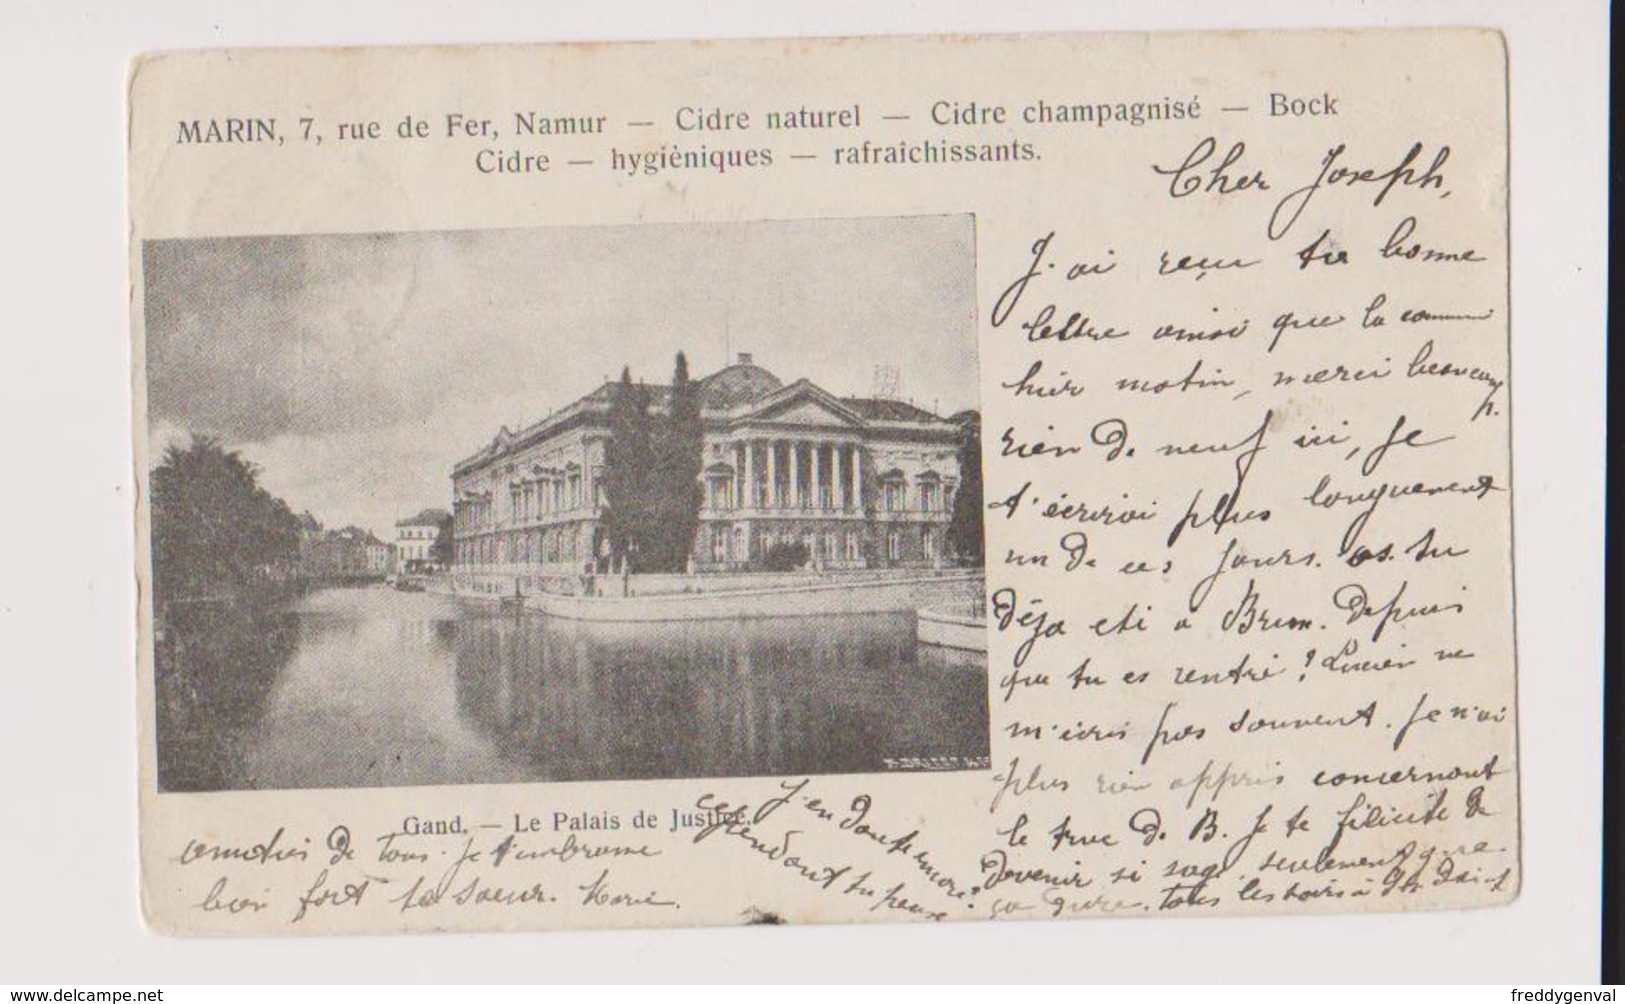 MARIN, 7, rue de Fer, Namur — Cidre naturel — Cidre champagnisé — Bock
Cidre — hygièniques — rafraîchissants.
Cher Joseph,
J'ai reçu ta bonne
lettre ainsi que la
hier matin, merci beaucoup.
rien de neuf ici, Je
t'écrirai plus longuement
un de ces jours. as. tu
déja eté a Brux. depuis
que tu es rentré? Lucien ne
m'écris pas souvent. Je n'ai
plus rien appris concernant
le truc de B. Je te félicite de
devenir si sage, seulement que
ça dure. tous les soirs à
J'en doute encore?
cependant tu peux
Gand. — Le Palais de Justice.
amitiés de tous. Je t'embrasse
bien fort ta soeur. Marie.
delcampe.net
freddygenval